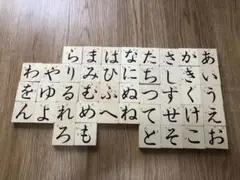 あいうえお
かきくけこ
さしすせそ
たちつてと
なにぬね
はひふへ
まみむめも
らりるれろ
やゆよ
わをん